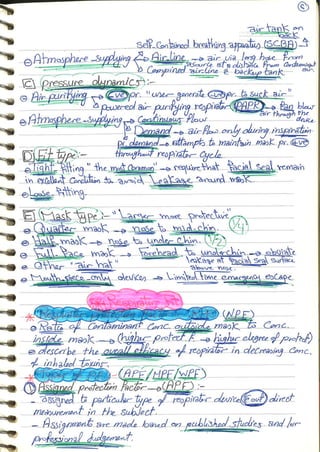 air tank on back
Self Contained breathing apparatus (SCBA)
Atmosphere supplying → Airline → air via long hose from
source at a distance from Contaminant air
Combined airline & backup tank
C pressure dynamics:-
Air purifying → -ve pr. "user generate -ve pr. to suck air"
powered air purifying respirator (PAPR) → Fan blow air through the device
Atmosphere supplying → Continuous flow
Demand → air flow only during inspiration
pr. demand → attempts to maintain mask pr. +ve
throughout respirator cycle
D Fit type:-
Tight fitting "the most common" → require that facial seal remain
in excellent Condition to avoid Leakage around mask
Loose fitting.
E Mask type:- "Larger more protective"
Quarter mask → nose to mid.chin. (1/4)
Half mask → nose to under chin. (1/2)
Full-face mask → forehead to under chin → obviate
leakage at facial seal surface above nose.
Other "air hat"
Mouth piece only devices → Limited time emergency escape
Respirator PF
(PF) (NPF)
Ratio of Contaminant Conc. outside mask to Conc.
inside mask → (higher protect. F → higher degree of protect)
describe the overall efficacy of respirator in decreasing Conc.
of inhaled toxins.
Types of PF (APF/MPF/WPF)
1 Assigned protection factor → (APF) :-
- assigned to particular type of respirator device without direct
measurement in the subject.
- Assignments are made based on published studies and/or
professional judgement.